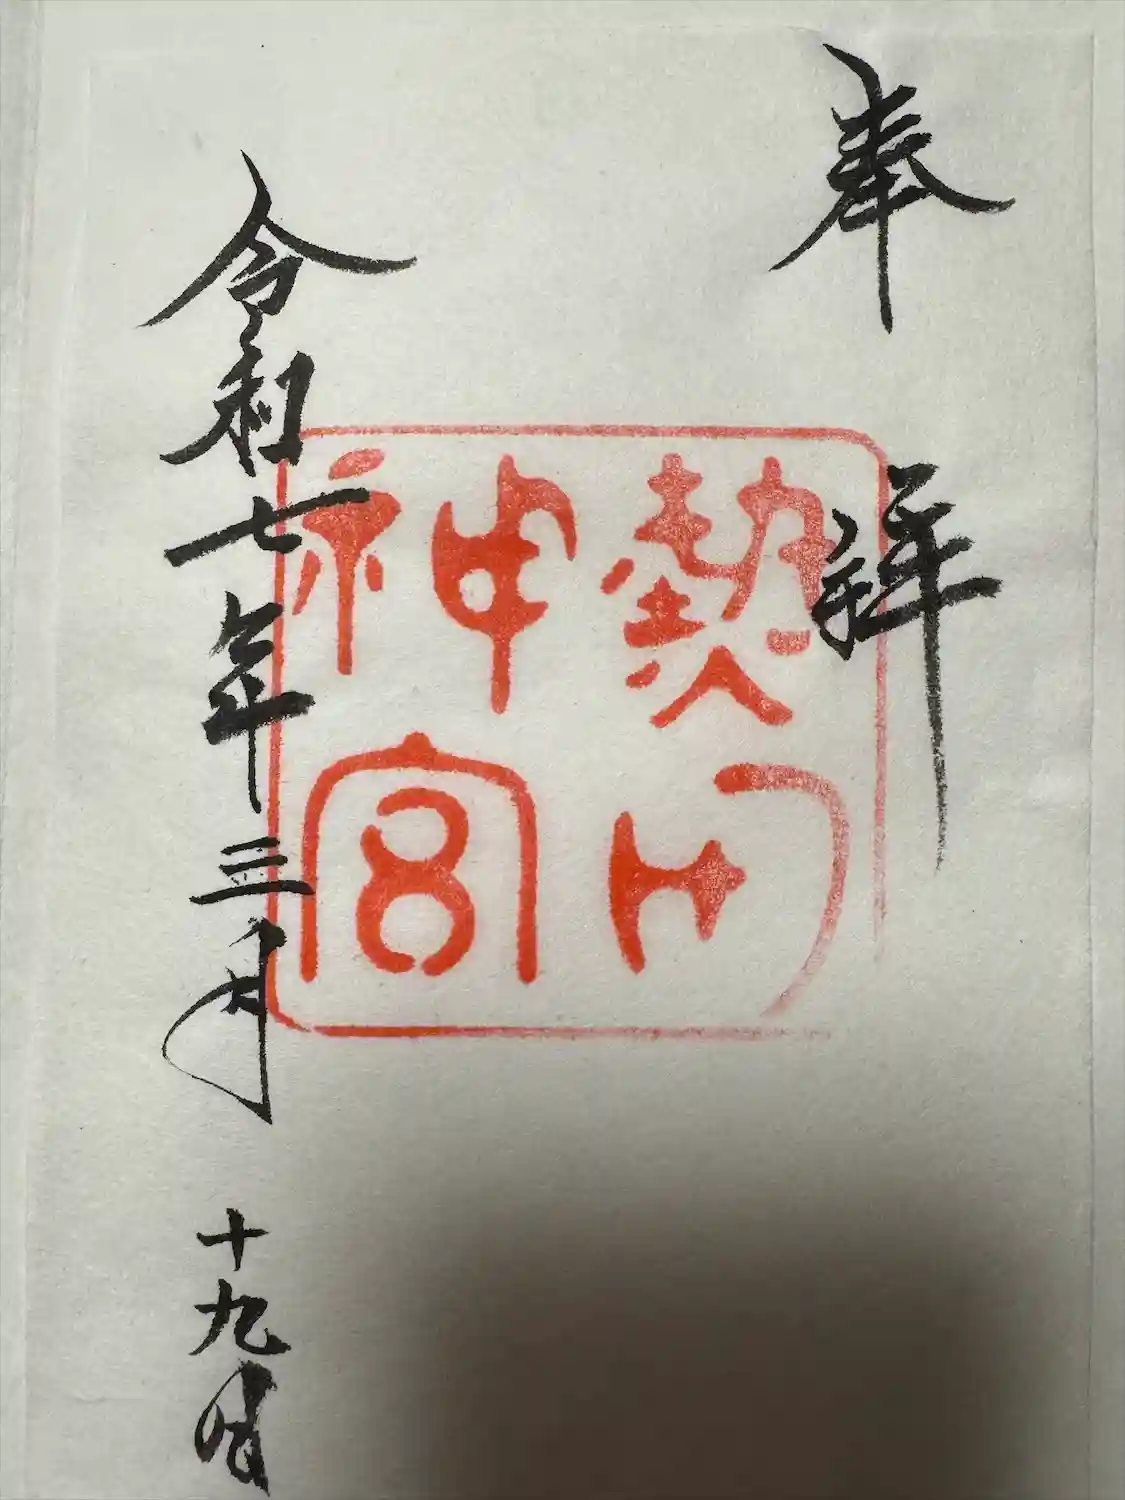 奉拝
熱田
神宮
令和七年三月十九日